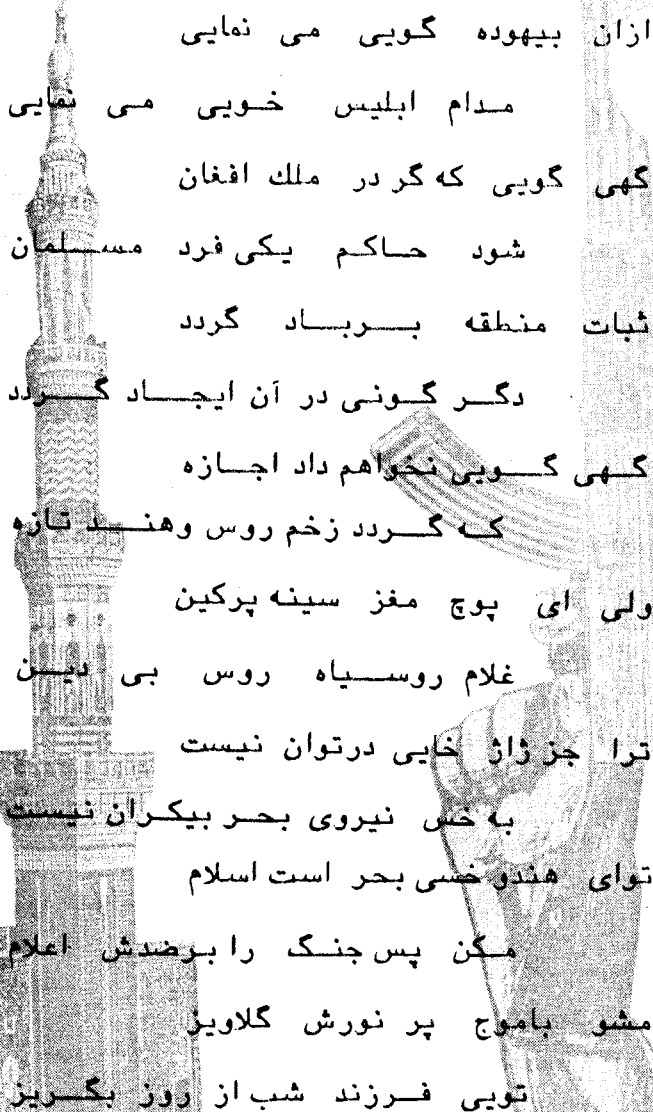 ازان بیهوده گویی می نمایی
مدام ابلیس خویی می نمایی
گهی گویی که گر در ملك افغان
شود حاکم یکی فرد مسلمان
ثبات منطقه برباد گردد
دگر گونی در آن ایجاد گردد
گهی گویی نخواهم داد اجازه
که گردد زخم روس وهند تازه
ولی ای پوچ مغز سینه پرکین
غلام روسیاه روس بی دین
ترا جز ژاژ خایی درتوان نیست
به خس نیروی بحر بیکران نیست
توای هندو خسی بحر است اسلام
مکن پس جنگ را برضدش اعلام
مشو باموج پر نورش گلاویز
تویی فرزند شب از روز بگریز